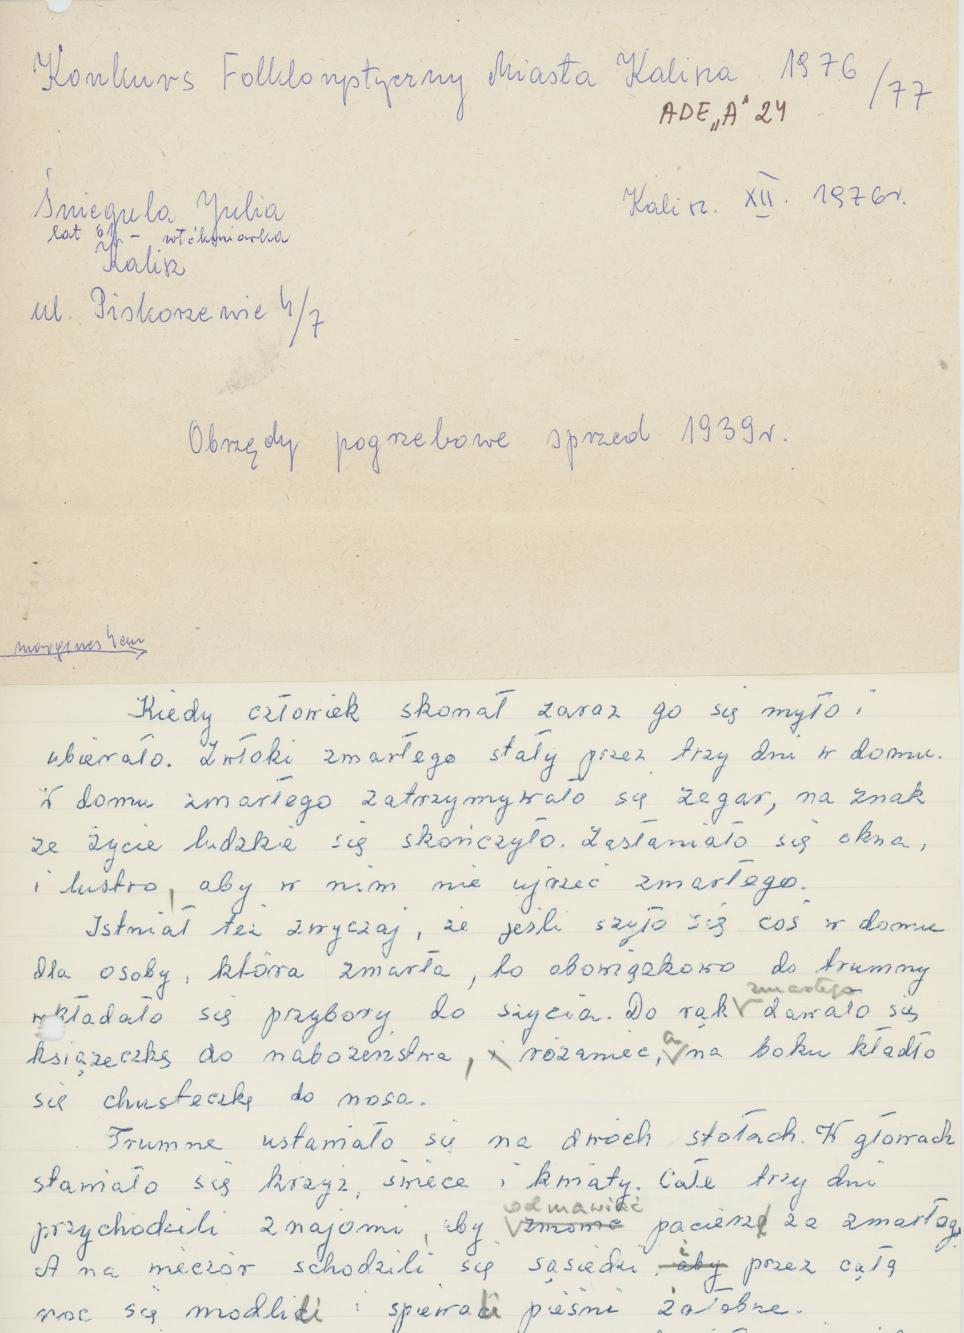 Konkurs Folklorystyczny Miasta Kalisza 1976/77
ADE„A" 24
Śnieguła Julia
Kalisz. XII. 1976r.
lat 61 – włókniarka
Kalisz
ul. Piskorzewie 4/7
Obrzędy pogrzebowe sprzed 1939r.
margines 4 cm
Kiedy człowiek skonał zaraz go się myło i
ubierało. Zwłoki zmarłego stały przez trzy dni w domu.
W domu zmarłego zatrzymywało się zegar, na znak
że życie ludzkie się skończyło. Zasłaniało się okna,
i lustro, aby w nim nie ujrzeć zmarłego.
Istniał też zwyczaj, że jeśli szyło się coś w domu
dla osoby, która zmarła, to obowiązkowo do trumny
zmarłego
wkładało się przybory do szycia. Do rąk dawało się
książeczkę do nabożeństwa, i różaniec, a na boku kładło
się chusteczkę do nosa.
Trumne ustawiało się na dwóch stołach. W głowach
stawiało się krzyż, świece i kwiaty. Całe trzy dni
odmawiać
przychodzili znajomi, aby zmówić pacierz za zmarłego.
A na wieczór schodzili się sąsiedzi i aby przez całą
noc się modlili i śpiewali pieśni żałobne.